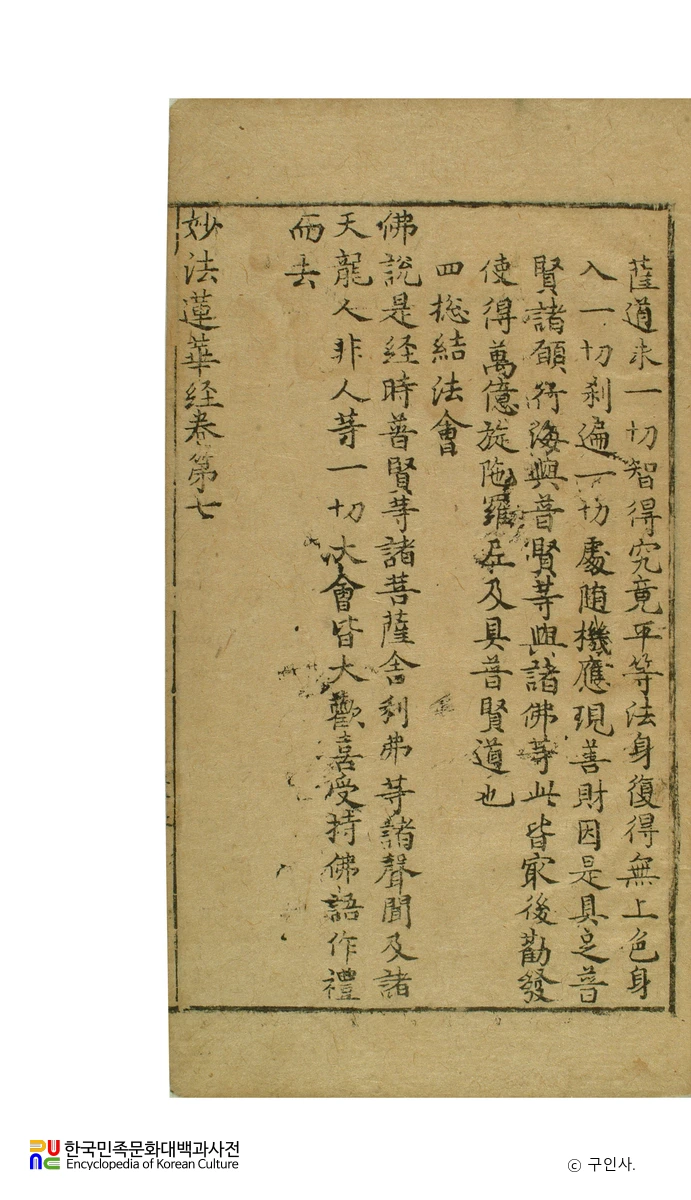 薩道求一切智得究竟平等法身復得無上色身
入一切刹遍一切處随機應現善財因是具足普
賢諸願行海與普賢等與諸佛等此皆冣後勸發
使得萬億旋陁羅尼及具普賢道也
四捴結法會
佛說是経時普賢等諸菩薩舍利弗等諸聲聞及諸
天龍人非人等一切大會皆大歡喜受持佛語作禮
而去
妙法蓮華経巻第七
한국민족문화대백과사전
Encyclopedia of Korean Culture
© 구인사.